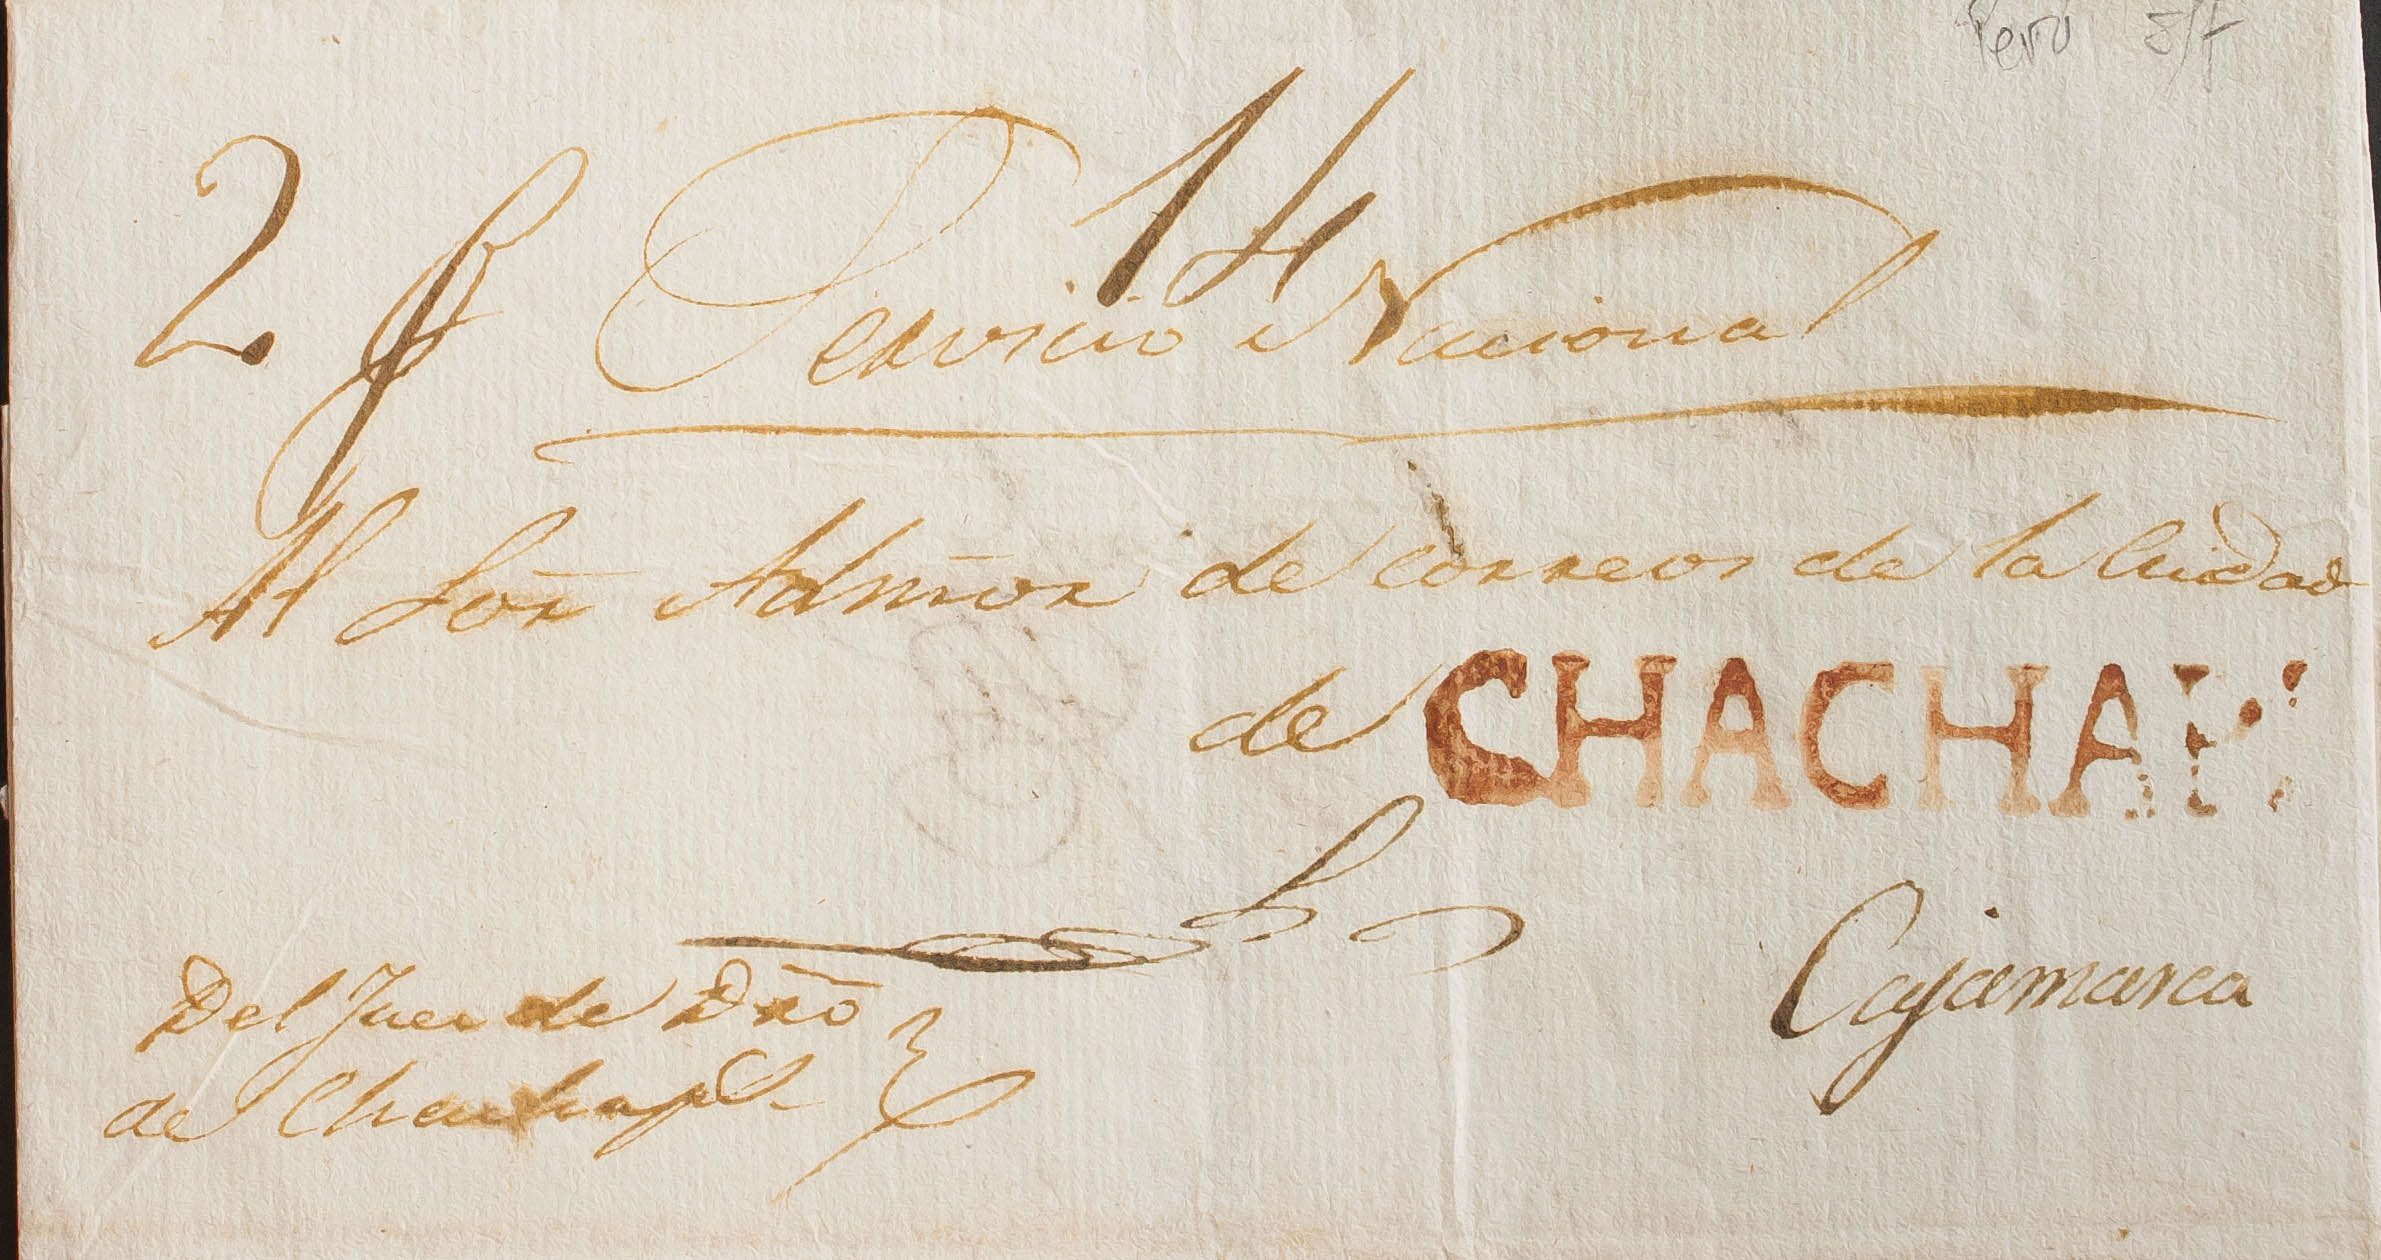 Perú s/f
2 14
Servicio Nacional
Al Sōr Admōr de correos de la Ciudad
de CHACHAP
Cajamarca
Del Juez de Dr̄o
de Chachap.